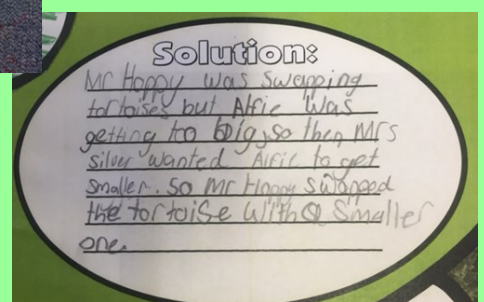 Solution:
Mr Hoppy was swapping
tortoises but Alfie was
getting to big, so then Mrs
silver wanted Alfie to get
smaller. So Mr Hoppy swapped
the tortoise with a smaller
one.